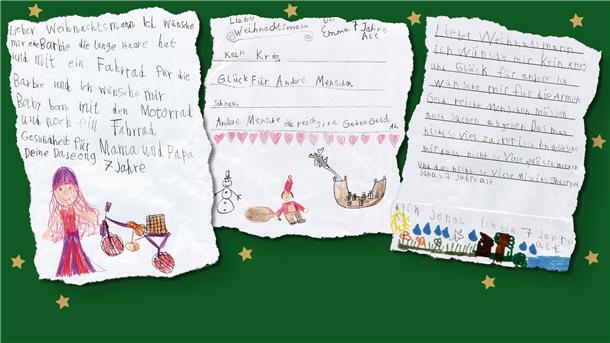 Lieber Weihnachtsmann Ich wünsche
mir eine Barbie die lange Haare hat
und mit ein Fahrrad für die
Barbie und Ich wünsche mir
Baby born mit den Motorrad
und noch ein Fahrrad
Gesundheit für Mama und Papa
Deine Dajeong 7 Jahre
Liebe
Weihnachtsmann
Emma 7 Jahre
Alt
kein Krieg
Glück Für Andere Menschen
Schnee
Andere Mensche die reich sind Geben Geld Ab
Lieber Weihnaltsmann
ich wünsche mir kein krieg
und Glück für andere Ich
wünsche mir für die Armen
Geld reiche Menschen müssen
auch sachen abgeben Das man
nicht so viel
mir dass nicht so viele
und das nicht so viele
Jonas 7 Jahre alt
Jonas ich bin 7 Jahre
alt